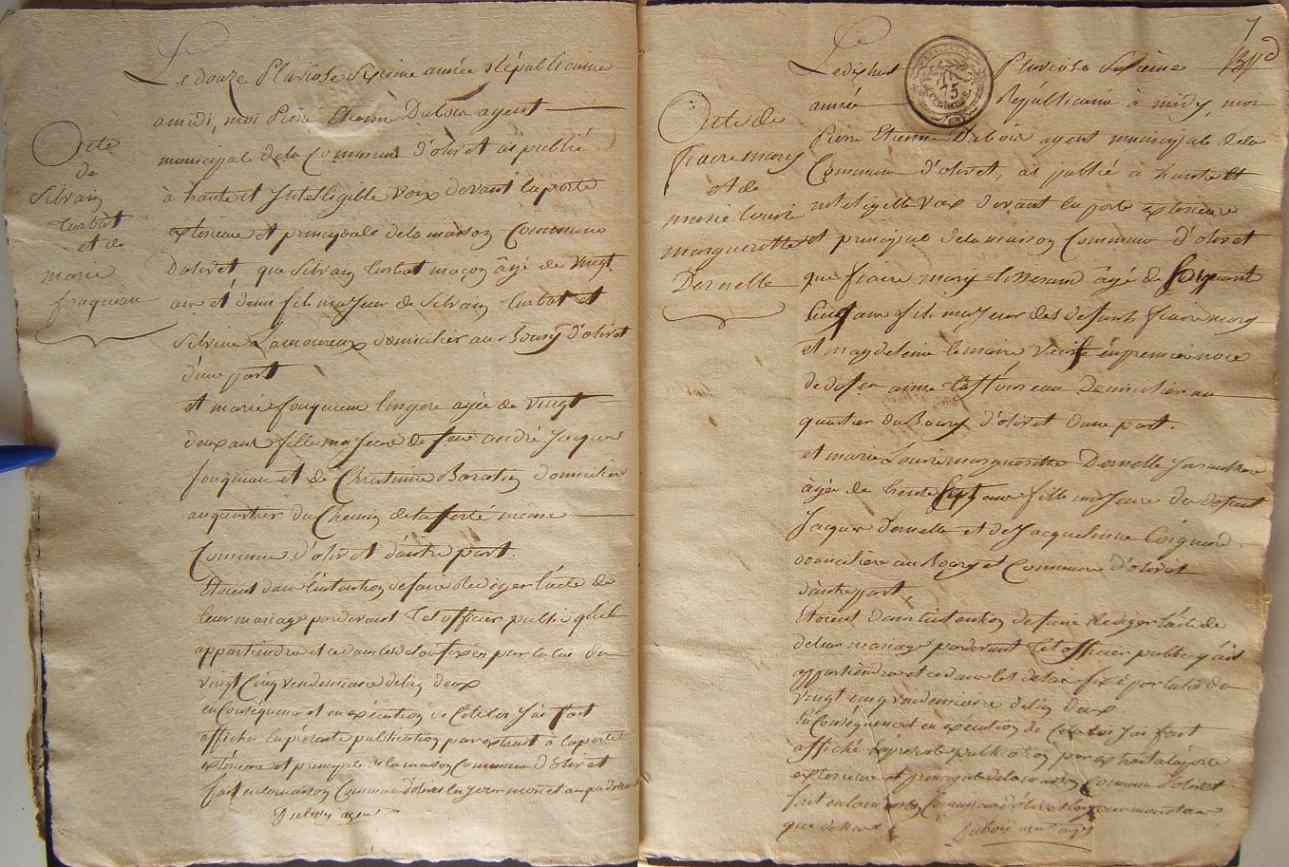 Acte
de
Silvain
Turbat
et de
marie
fouqueau
Le douze Pluviose Septieme année Républicaine
amidi, moi Pierre Etienne Dubois agent
municipal de la Commune d'olivet ai publié
à haute et Intelligible voix devant la porte
exterieure et principale de la maison Commune
d'olivet que Silvain Turbat maçon âgé de vingt
ans et deux fils majeur de Silvain Turbat et
Silvine Lamoureux domicilier au Bourg d'olivet
d'une part
et marie fouqueau lingere agée de vingt
deux ans fille majeure de feu andré Jacques
fouqueau et de Christinne domicilier
au quartier du Chemin de la ferté meme
Commune d'olivet d'autre part.
Etoient dans l'intention de faire Rediger l'acte de
leur mariage pardevant tel officier public qu'il
appartiendra et ce dans les delais fixés par la loi du
vingt Cinq vendemiaire de l'an deux
en Conséquence et en exécution de Cete loi J'ai fait
afficher la présente publication par extrait à la porte
exterieure et principale de la maison Commune d'olivet
fait en la maison Commune d'olivet les jour mois et an que dessus
Dubois agent
7
Acte de
fiacre mary
et de
marie louise
margueritte
Dernelle
Ledixhuit Pluviose Septieme
année Républicaine à midy, moi
Pierre Etienne Dubois agent municipal de la
Commune d'olivet, ai publié à haute et
voix devant la porte exterieure
et principal de la maison Commune d'olivet
que fiacre mary tisserand âgé de Soixante
Cinq ans fils majeur des defunts fiacre mary
et magdeleine lemaire veuf en premier noce
de defen domicilier au
quartier du Bourg d'olivet d'une part.
et marie Louise margueritte Dernelle
âgée de trente Sept ans fille majeure du defunt
Jacques Dernelle et de Jacquelinne
domicilier au Bourg et Commune d'olivet
d'autre part,
Etoient dans l'intention de faire Rediger l'acte de
de leur mariage pardevant tel officier public qu'il
appartiendra et ce dans les delais fixé par la loi du
vingt cinq vendemiaire de l'an deux
En Conséquence et en exécution de Cete loi J'ai fait
affiché la presente publication par extrait à la porte
exterieure et principale de la maison Commune d'olivet
fait en la maison Commune d'olivet les jour mois et an
que dessus Dubois agent